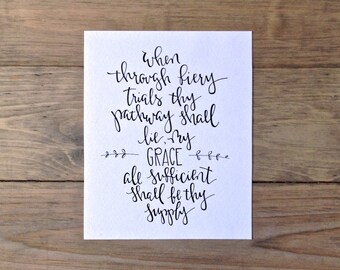 when
through fiery
trials thy
pathway shall
lie, My
GRACE
all sufficient
shall be thy
supply